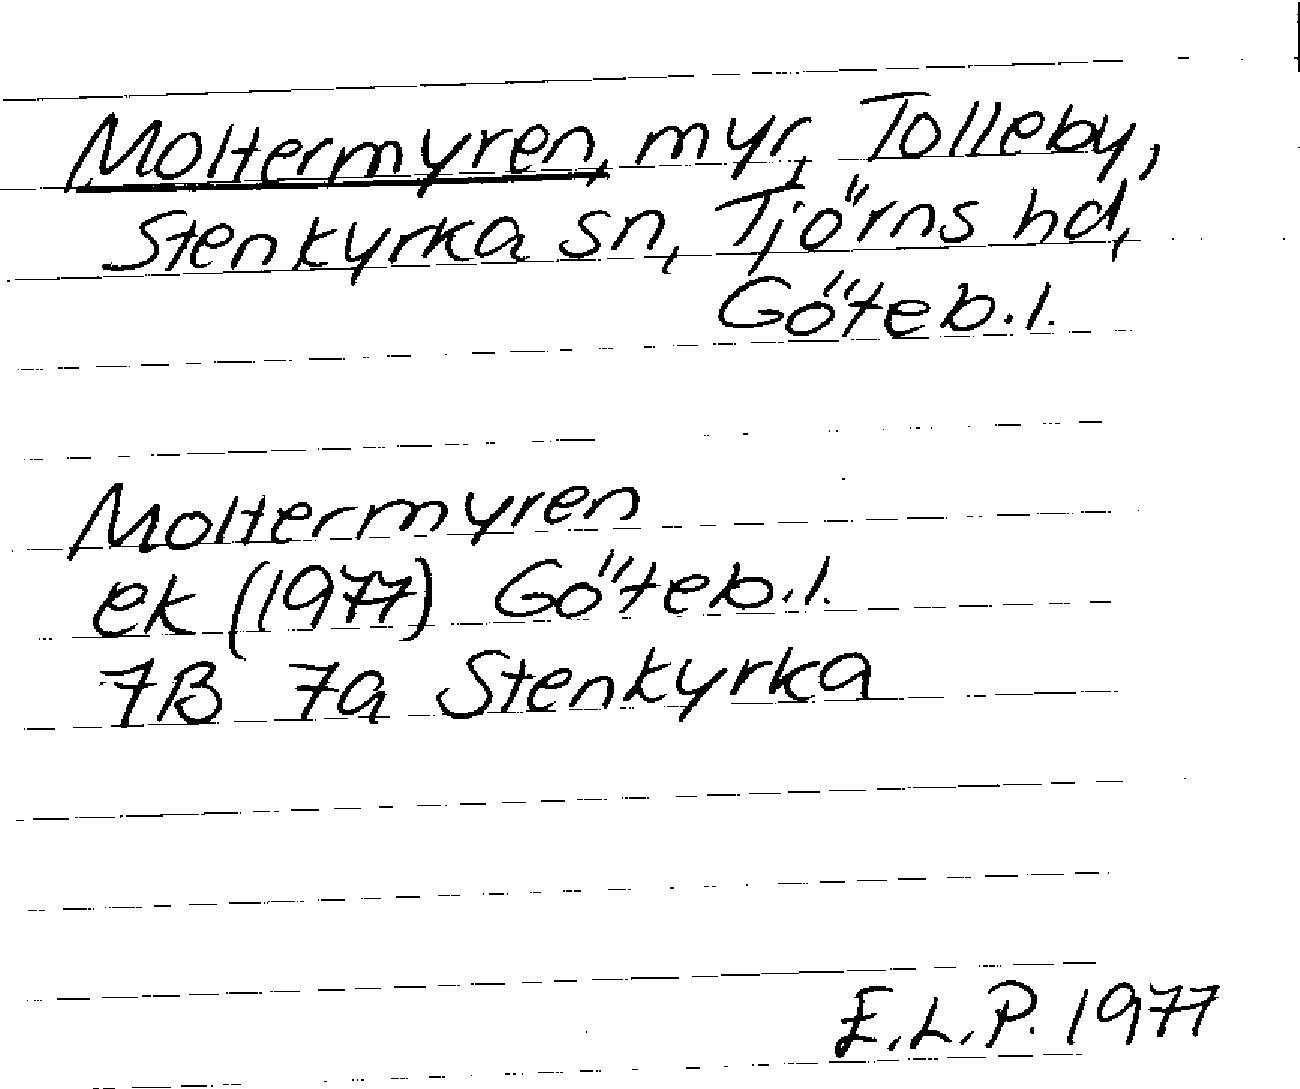 Moltermyren, myr, Tolleby,
Stenkyrka sn, Tjörns hd,
Göteb.l.
Moltermyren
ek (1977) Göteb.l.
7B 7a Stenkyrka
E.L.P. 1977